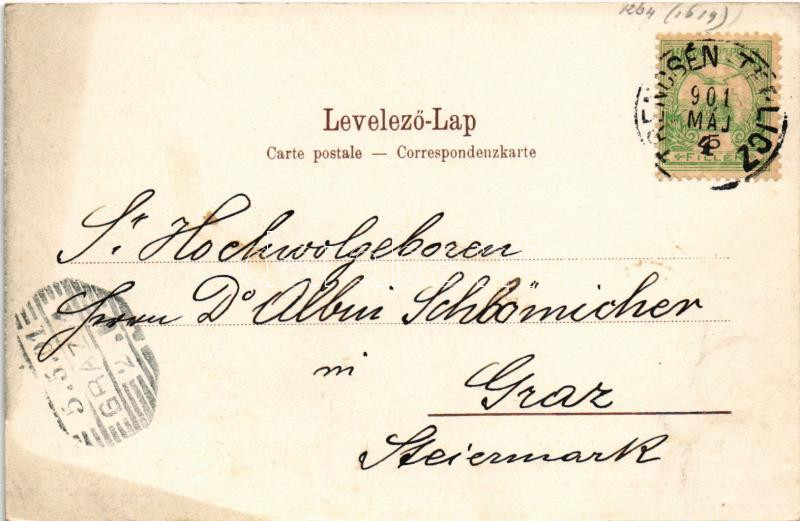 1264 (1619)
TRENCSÉN-TEPLICZ
901
MÁJ
FILLÉR
Levelező-Lap
Carte postale — Correspondenzkarte
Sr Hochwolgeboren
Herrn Dr Albin Schlömicher
in
Graz
Steiermark
GRAZ 2
5.5.